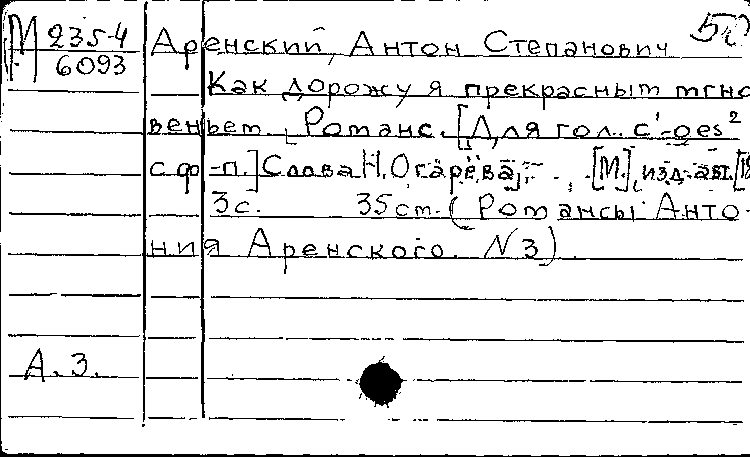 М 235-4
6093
50
Аренский, Антон Степанович
Как дорожу я прекрасным мгно
веньем. Романс. [Для гол. c¹-ges²
с ф-п.] Слова Н. Огарёва, [М], изд. авт. [18
3с. 35см. (Романсы Анто-
ния Аренского. N3).
А.З.